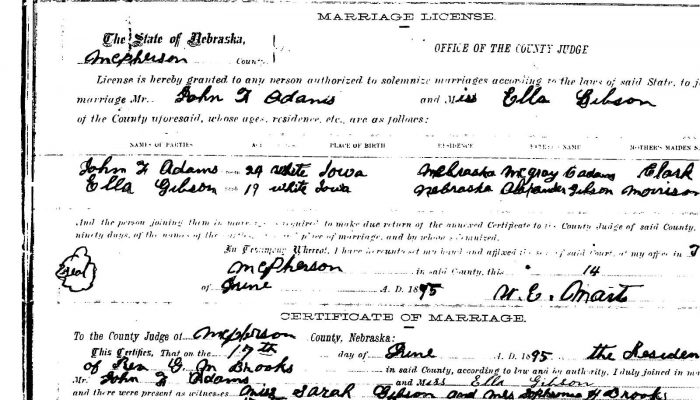 MARRIAGE LICENSE.
The State of Nebraska,
McPherson County
OFFICE OF THE COUNTY JUDGE
License is hereby granted to any person authorized to solemnize marriages according to the laws of said State, to
marriage Mr. John F Adams and Miss Ella Gibson
of the County aforesaid, whose ages, residence, etc., are as follows:
NAMES OF PARTIES PLACE OF BIRTH RESIDENCE NAME MOTHER'S MAIDEN
John F Adams 24 white Iowa Nebraska McGray Adams Clark
Ella Gibson 19 white Iowa Nebraska Alexander Gibson Morrison
And the person joining them in marriage is required to make due return of the annexed Certificate to the County Judge of said County,
ninety days, of the names of the place of marriage, and by whom solemnized.
In Testimony Whereof, I have hereunto set my hand and affixed the seal of said Court, at my office in
Seal
McPherson in said County, this 14
of June A. D. 1895 W. E.
CERTIFICATE OF MARRIAGE.
To the County Judge of McPherson County, Nebraska:
This Certifies, That on the 17th day of June A. D. 1895 the Residen
of Rev G. M Brooks in said County, according to law and by authority, I duly joined in
Mr. John F Adams and Miss Ella Gibson
and there were present as witnesses Miss Sarah Gibson and Mrs H Brooks